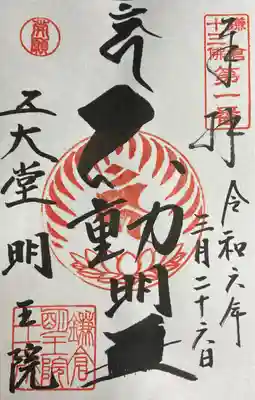 鎌倉
十三佛
第一番
奉拝
令和六年
三月二十六日
不動明王
五大堂
明王院